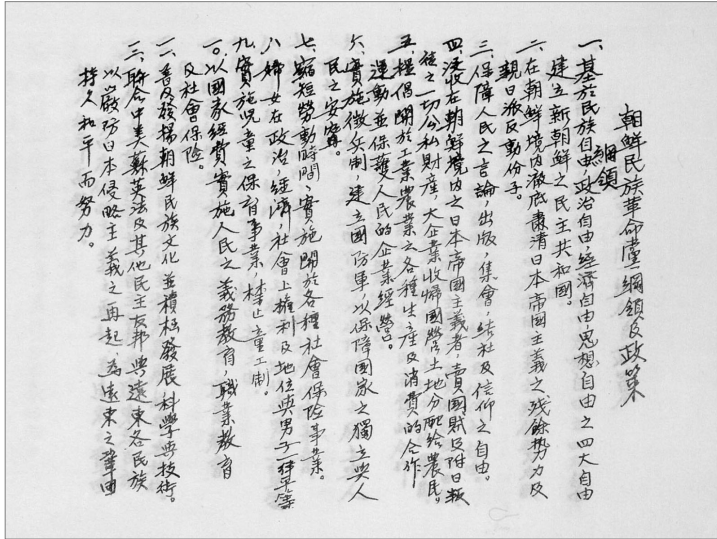 朝鮮民族革命黨綱領及政策
綱領
一、基於民族自由,政治自由,經濟自由,思想自由之四大自由
建立新朝鮮之民主共和國。
二、在朝鮮境內澈底肅清日本帝國主義之残餘势力及
親日派反動份子。
三、保障人民之言論,出版,集會,結社及信仰之自由。
四、沒收在朝鮮境內之日本帝國主義者,賣國賊及附日叛
徒之一切公私財産,大企業收歸國營,土地分配給農民。
五、提倡關於工業農業之各種生産及消費的合作
運動並保護人民的企業經營。
六、實施徵兵制,建立國防軍,以保障國家之獨立與人
民之安寧。
七、縮短勞動時間,實施關於各種社會保險事業。
八、婦女在政治,經濟,社會上權利及地位與男子一律平等
九、實施児童之保育事業,禁止童工制。
一〇、以國家經費實施人民之義務教育,職業教育
及社會保險。
一一、普及發揚朝鮮民族文化並積极發展科學與技術。
一二、聯合中美蘇英法及其他民主友邦與遠東各民族
以嚴防日本侵略主義之再起,為遠東之鞏固
持久和平而努力。